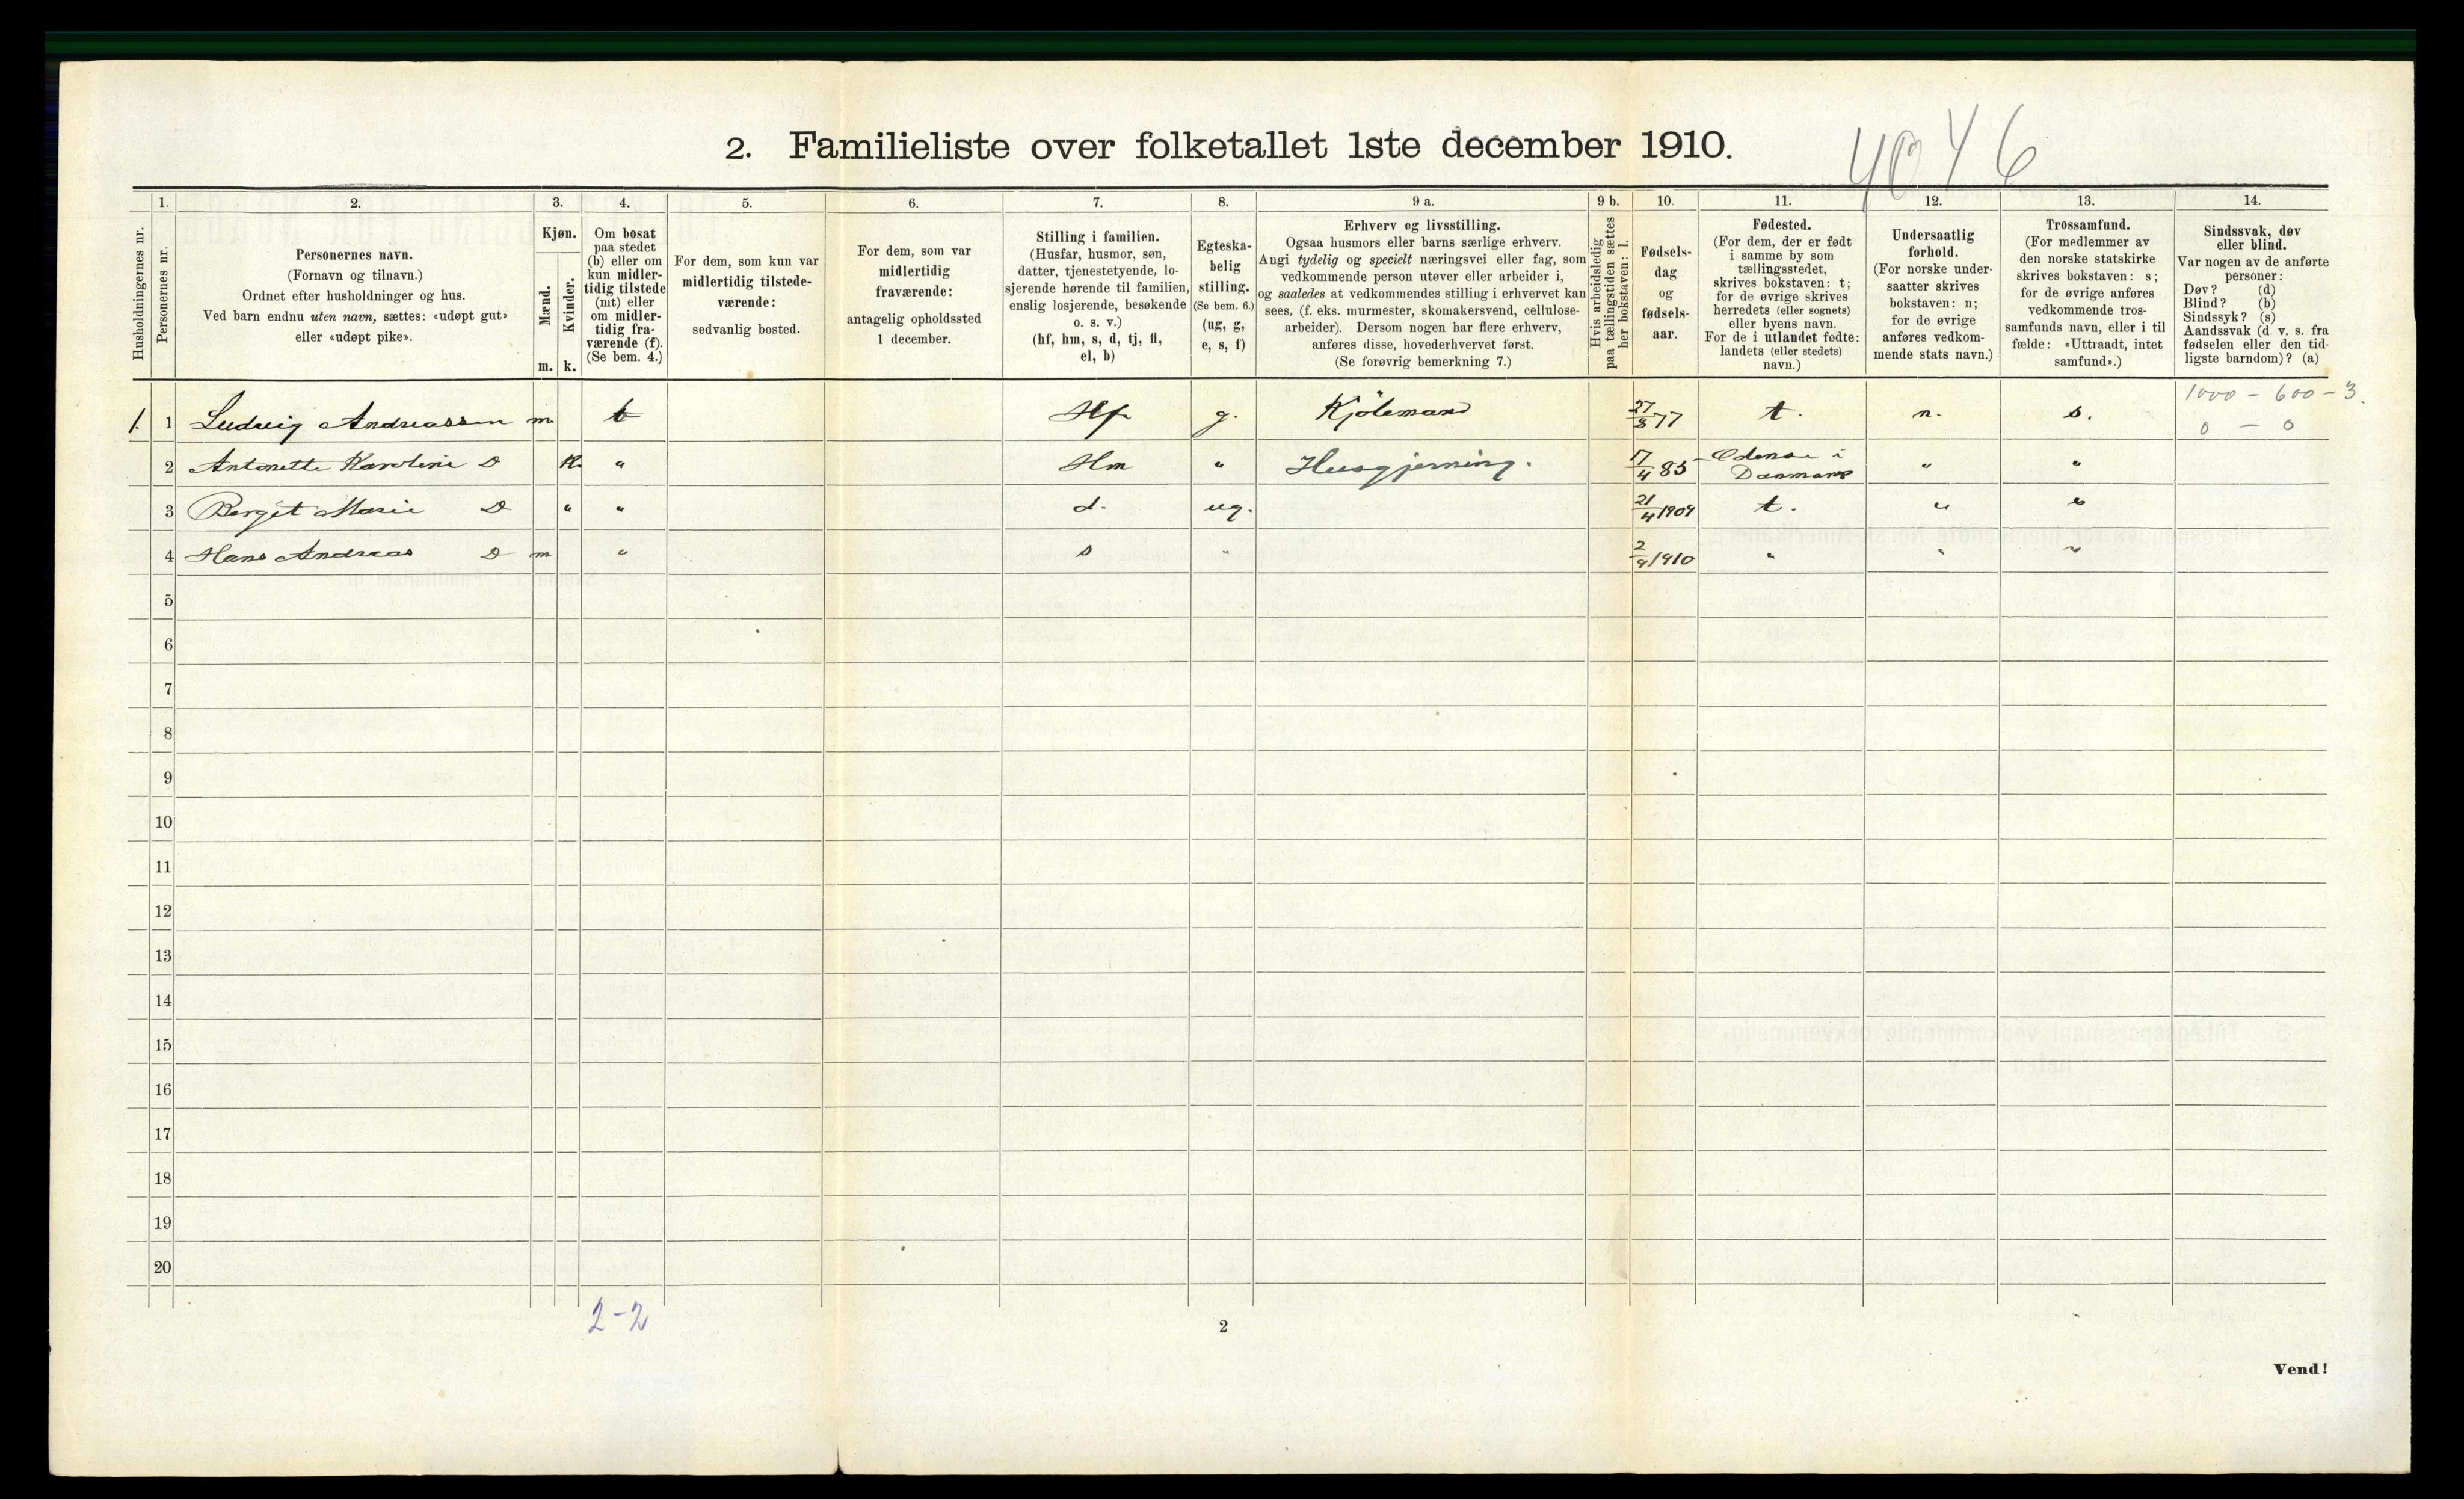 4046
2. Familieliste over folketallet 1ste december 1910.
1. 2. 3. 4. 5. 6. 7. 8. 9 a. 9 b. 10. 11. 12. 13. 14.
Husholdningernes nr.
Personernes nr.
Personernes navn.
(Fornavn og tilnavn.)
Ordnet efter husholdninger og hus.
Ved barn endnu uten navn, sættes: «udøpt gut»
eller «udøpt pike».
Kjøn.
Mænd.
Kvinder.
m. k.
Om bosat
paa stedet
(b) eller om
kun midler-
tidig tilstede
(mt) eller
om midler-
tidig fra-
værende (f).
(Se bem. 4.)
For dem, som kun var
midlertidig tilstede-
værende:
sedvanlig bosted.
For dem, som var
midlertidig
fraværende:
antagelig opholdssted
1 december.
Stilling i familien.
(Husfar, husmor, søn,
datter, tjenestetyende, lo-
sjerende hørende til familien,
enslig losjerende, besøkende
o. s. v.)
(hf, hm, s, d, tj, fl,
el, b)
Egteska-
belig
stilling.
(Se bem. 6.)
(ug, g,
e, s, f)
Erhverv og livsstilling.
Ogsaa husmors eller barns særlige erhverv.
Angi tydelig og specielt næringsvei eller fag, som
vedkommende person utøver eller arbeider i,
og saaledes at vedkommendes stilling i erhvervet kan
sees, (f. eks. murmester, skomakersvend, cellulose-
arbeider). Dersom nogen har flere erhverv,
anføres disse, hovederhvervet først.
(Se forøvrig bemerkning 7.)
Hvis arbeidsledig
paa tællingstiden sættes
her bokstaven: l.
Fødsels-
dag
og
fødsels-
aar.
Fødested.
(For dem, der er født
i samme by som
tællingsstedet,
skrives bokstaven: t;
for de øvrige skrives
herredets (eller sognets)
eller byens navn.
For de i utlandet fødte:
landets (eller stedets)
navn.)
Undersaatlig
forhold.
(For norske under-
saatter skrives
bokstaven: n;
for de øvrige
anføres vedkom-
mende stats navn.)
Trossamfund.
(For medlemmer av
den norske statskirke
skrives bokstaven: s;
for de øvrige anføres
vedkommende tros-
samfunds navn, eller i til
fælde: «Uttraadt, intet
samfund».)
Sindssvak, døv
eller blind.
Var nogen av de anførte
personer:
Døv? (d)
Blind? (b)
Sindssyk? (s)
Aandssvak (d. v. s. fra
fødselen eller den tid-
ligste barndom)? (a)
1000 – 600 – 3.
1. 1 Ludvig Andreassen m. Hf. g. Kjölemand 27/3 77 t. n. s. 0 – 0
2 Antonette Karoline D K. " Hm " Husgjerning. 17/4 85 Odense i
Danmark " "
3 Bergit Marie D " " d. ug. 21/4 1909 t. " "
4 Hans Andreas D m " s " 2/9 1910 " " "
5
6
7
8
9
10
11
12
13
14
15
16
17
18
19
20
2-2
2
Vend!